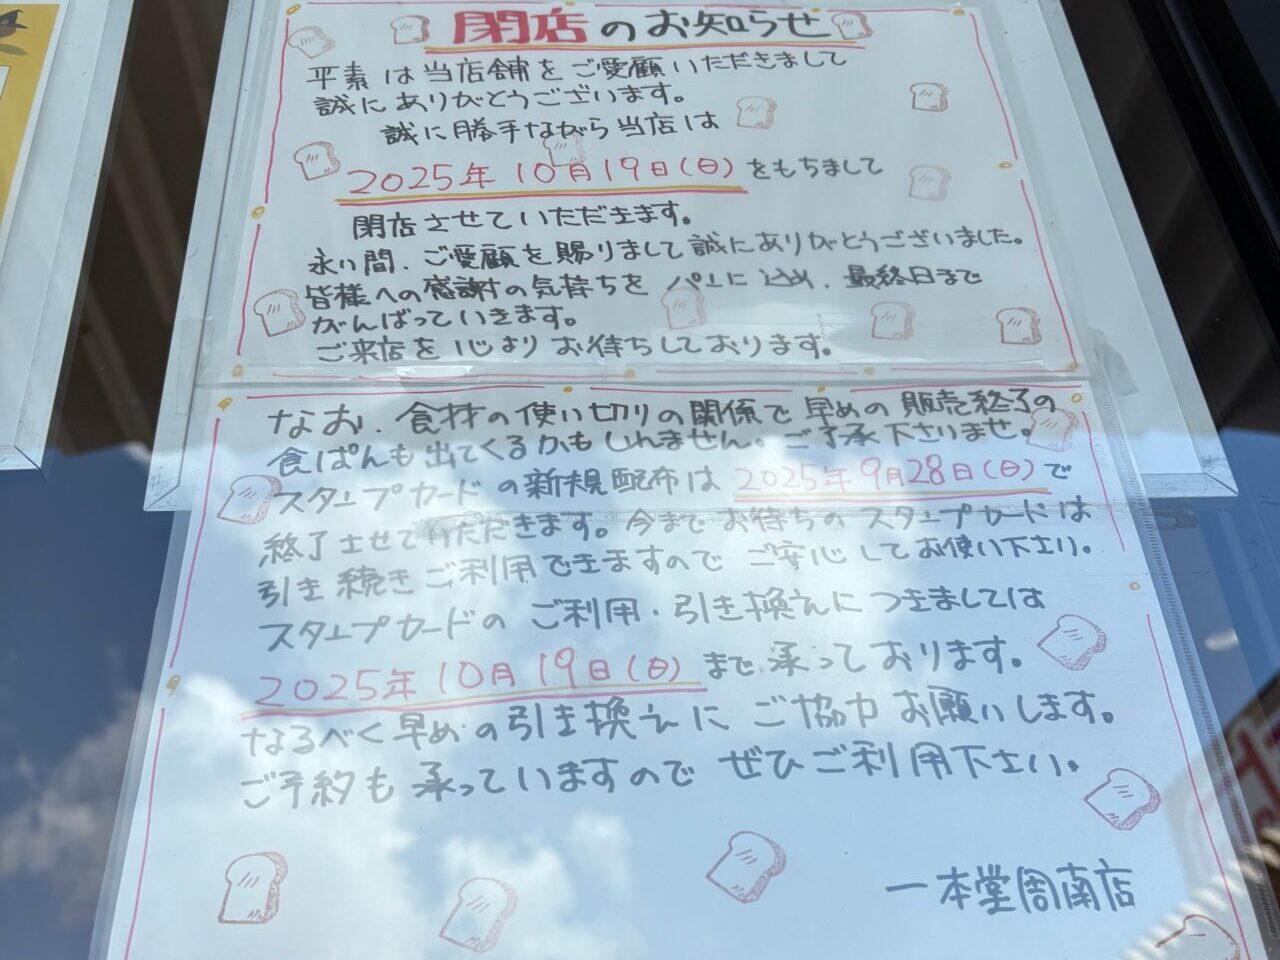 閉店のお知らせ
平素は当店舗をご愛顧いただきまして
誠にありがとうございます。
誠に勝手ながら当店は
2025年10月19日(日)をもちまして
閉店させていただきます。
永い間、ご愛顧を賜りまして誠にありがとうございました。
皆様への感謝の気持ちをパンに込め、最終日まで
がんばっていきます。
ご来店を心よりお待ちしております。
なお、食材の使い切りの関係で早めの販売終了の
食ぱんも出てくるかもしれません。ご了承下さいませ。
スタンプカードの新規配布は2025年9月28日(日)で
終了させていただきます。今までお待ちのスタンプカードは
引き続きご利用できますのでご安心してお使い下さい。
スタンプカードのご利用・引き換えにつきましては
2025年10月19日(日)まで承っております。
なるべく早めの引き換えにご協力お願いします。
ご予約も承っていますのでぜひご利用下さい。
一本堂周南店